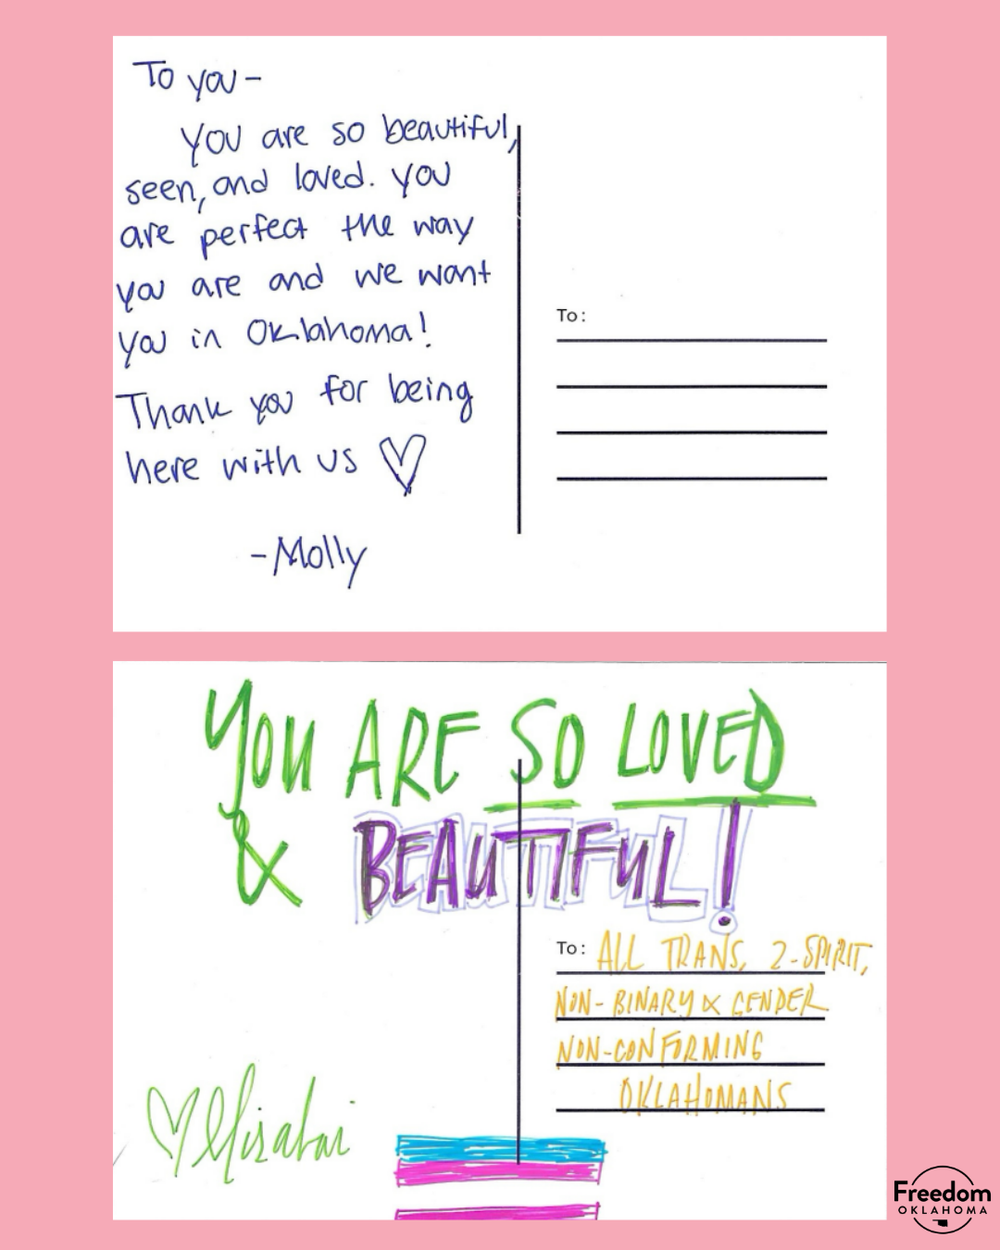 To you-
You are so beautiful,
seen, and loved. You
are perfect the way
you are and we want
you in Oklahoma!
Thank you for being
here with us
-Molly
To:
YOU ARE SO LOVED
& BEAUTIFUL!
To: ALL TRANS, 2-SPIRIT,
NON-BINARY & GENDER
NON-CONFORMING
OKLAHOMANS
Freedom
OKLAHOMA